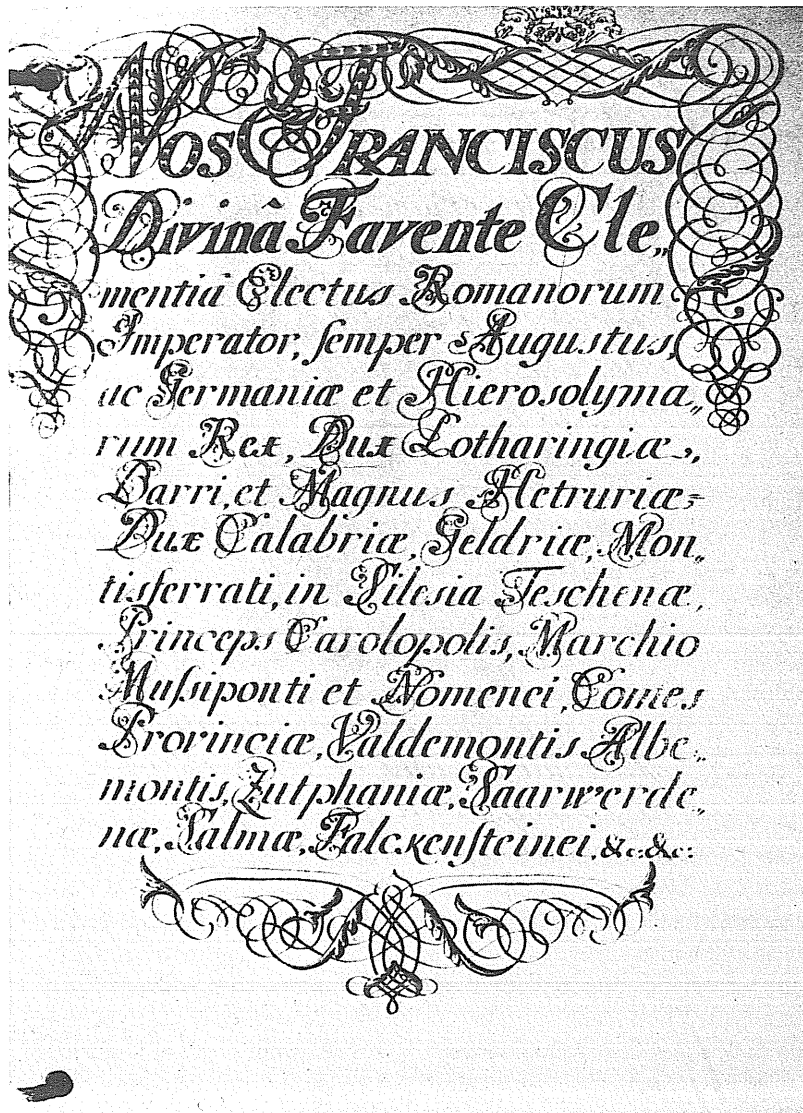 Nos Franciscus
Divinâ Favente Cle„
mentiâ Electus Romanorum
Imperator, semper Augustus,
ac Germaniæ et Hierosolyma„
rum Rex, Dux Lotharingiæ,
Barri, et Magnus Hetruriæ=
Dux Calabriæ, Geldriæ, Mon„
tisferrati, in Silesia Teschenæ,
Princeps Carolopolis, Marchio
Mussiponti et Nomenei, Comes
Provinciæ, Valdemontis Albe„
montis, Zutphaniæ, Saarwerde„
næ, Salmæ, Falckensteinei, &c: &c: